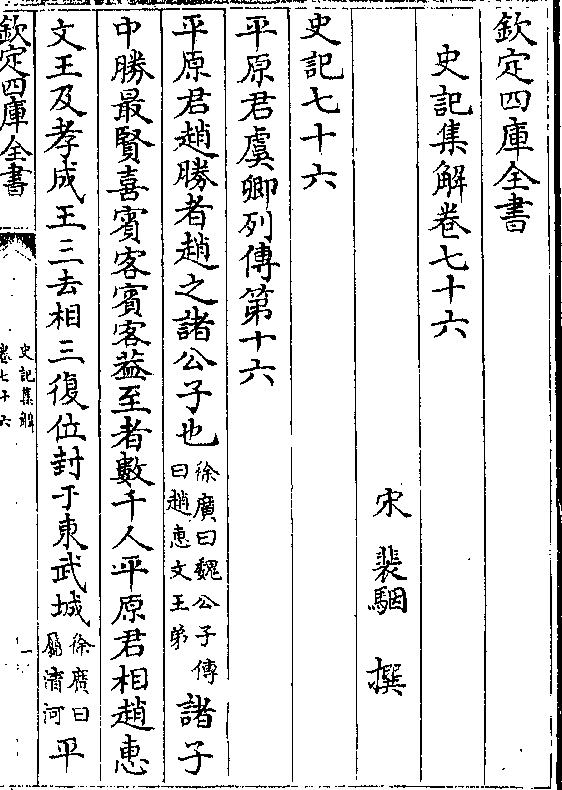 欽定四庫全書
史記集解卷七十六
宋 裴駰 撰
史記七十六
平原君虞卿列傳第十六
平原君趙勝者趙之諸公子也徐廣曰魏公子傳曰趙惠文王弟諸子
中勝最賢喜賓客賓客葢至者數千人平原君相趙惠
文王及孝成王三去相三復位封于東武城徐廣曰屬清河平
欽定四庫全書
史記集解
卷七十六
一